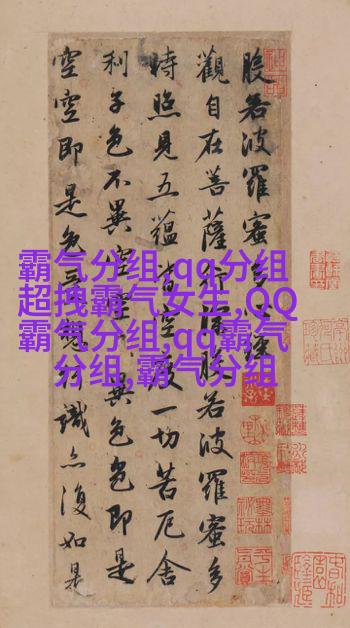 般若波羅蜜多心經
觀自在菩薩行深般若波羅蜜多
時照見五蘊皆空度一切苦厄舍
利子色不異空空不異色色即是
空空即是色受想行識亦復如是
霸气分组,qq分组
超拽霸气女生,QQ
霸气分组,qq霸气
分组,霸气分组